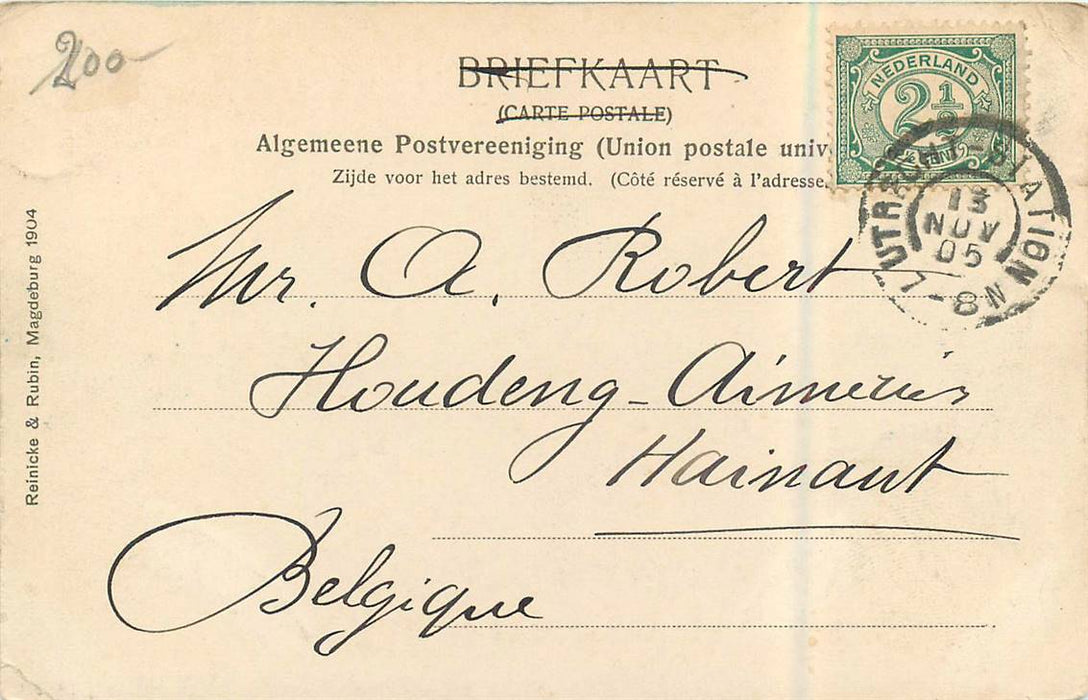 200
BRIEFKAART
(CARTE POSTALE)
Algemeene Postvereeniging (Union postale univ
Zijde voor het adres bestemd. (Côté réservé à l'adresse.
NEDERLAND
2½
CENT
UTRECHT-STATION
13
NOV
05
7-8N
Mr. A. Robert
Houdeng-Aimeries
Hainaut
Belgique
Reinicke & Rubin, Magdeburg 1904